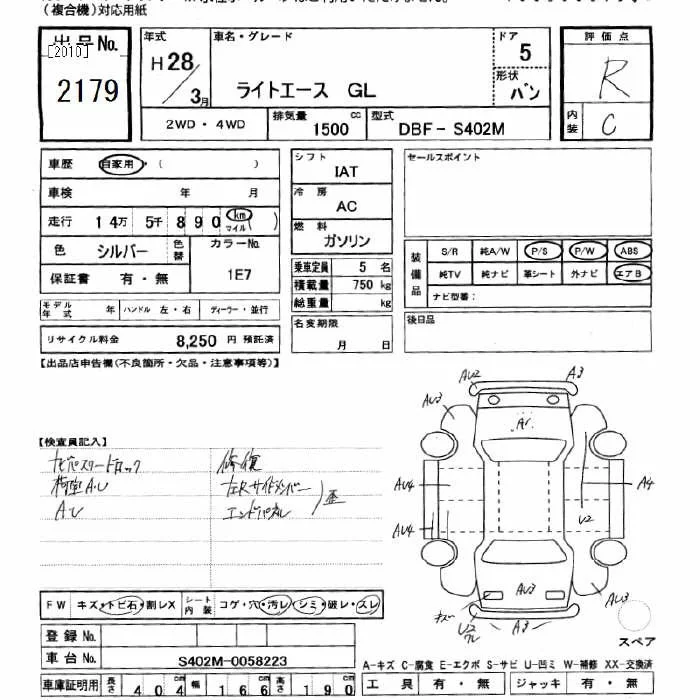 (複合機)対応用紙
出品No.
[2010]
2179
年式
H28
3月
車名・グレード
ライトエース GL
ドア
5
形状
バン
評価点
R
内装
C
2WD・4WD
排気量
1500 cc
型式
DBF-S402M
車歴 自家用・( )
車検 年 月
走行 14万 5千 890 km マイル ( )
色 シルバー 色替
カラーNo.
1E7
保証書 有・無
モデル年式 年 ハンドル 左・右 ディーラー・並行
リサイクル料金 8,250 円 預託済
シフト
IAT
冷房
AC
燃料
ガソリン
乗車定員 5 名
積載量 750 kg
総重量 kg
名変期限
月 日
セールスポイント
装備品
S/R 純A/W P/S P/W ABS
純TV 純ナビ 革シート 外ナビ エアB
ナビ型番:
後日品
【出品店申告欄(不良箇所・欠品・注意事項等)】
【検査員記入】
修復
A.U
左Rサイドメンバー
エンドパネル
歪
AU2
A3
AU3
A1
AU4
A4
AU4
U2
AU3
AU3
キズ
U2
A3
スペア
FW キズ・トビ石・割レX シート内装 コゲ・穴・汚レ・シミ・破レ・スレ
登録No.
車台No. S402M-0058223
車庫証明用 長さ 404 幅 166 高さ 190
A-キズ C-腐食 E-エクボ S-サビ U-凹ミ W-補修 XX-交換済
工具 有・無 ジャッキ 有・無